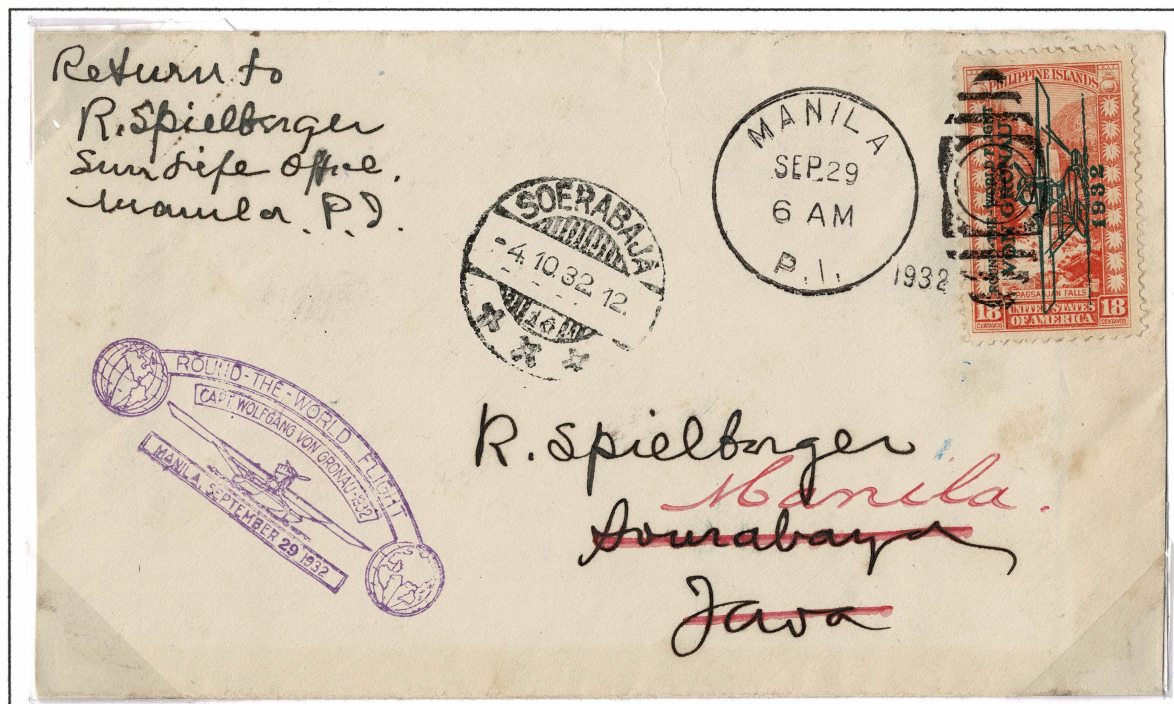 Return to
R. Spielberger
Sun Life Office.
Manila. P.I.
SOERABAJA
-4.10.32.12
MANILA
SEP 29
6 AM
P.I.
1932
PHILIPPINE ISLANDS
ROUND-THE-WORLD FLIGHT
VON GRONAU
1932
PAGSANJAN FALLS
18 UNITED STATES 18
CENTAVOS OF AMERICA CENTAVOS
ROUND-THE-WORLD FLIGHT
CAPT. WOLFGANG VON GRONAU-1932
MANILA, SEPTEMBER 29 1932
R. Spielberger
Manila.
Sourabaya
Java